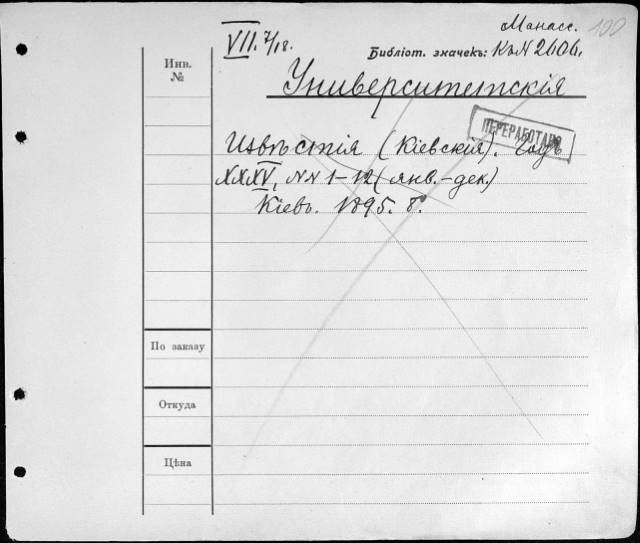 Манасс. 100
VII. 7/18.
Библіот. значекъ: К.N 2606.
Инв. №
Университетскія
ПЕРЕРАБОТАНО
Извѣстія (Кіевскія). Годъ
XXXV, NN 1-12 (янв.-дек.)
Кіевъ. 1895. 8.
По заказу
Откуда
Цѣна